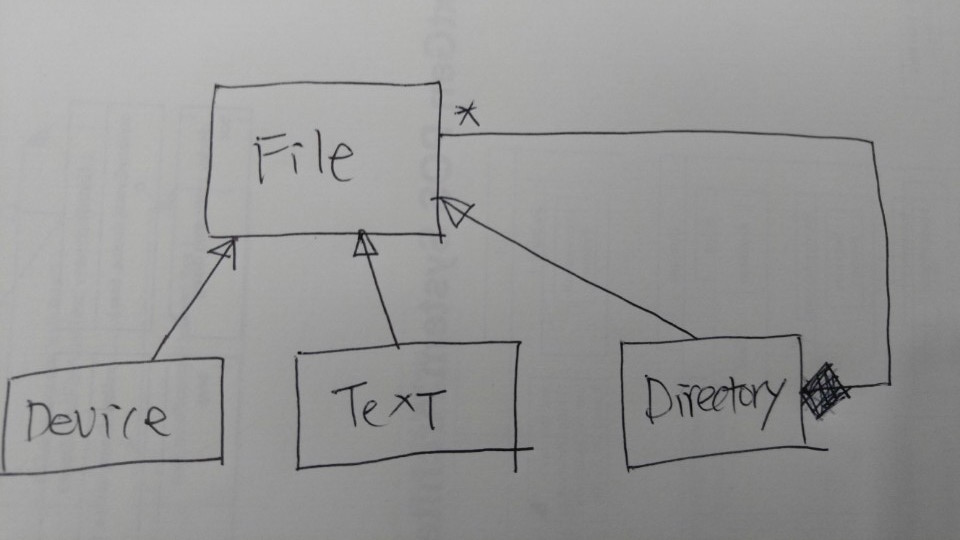 File
*
Device
Text
Directory